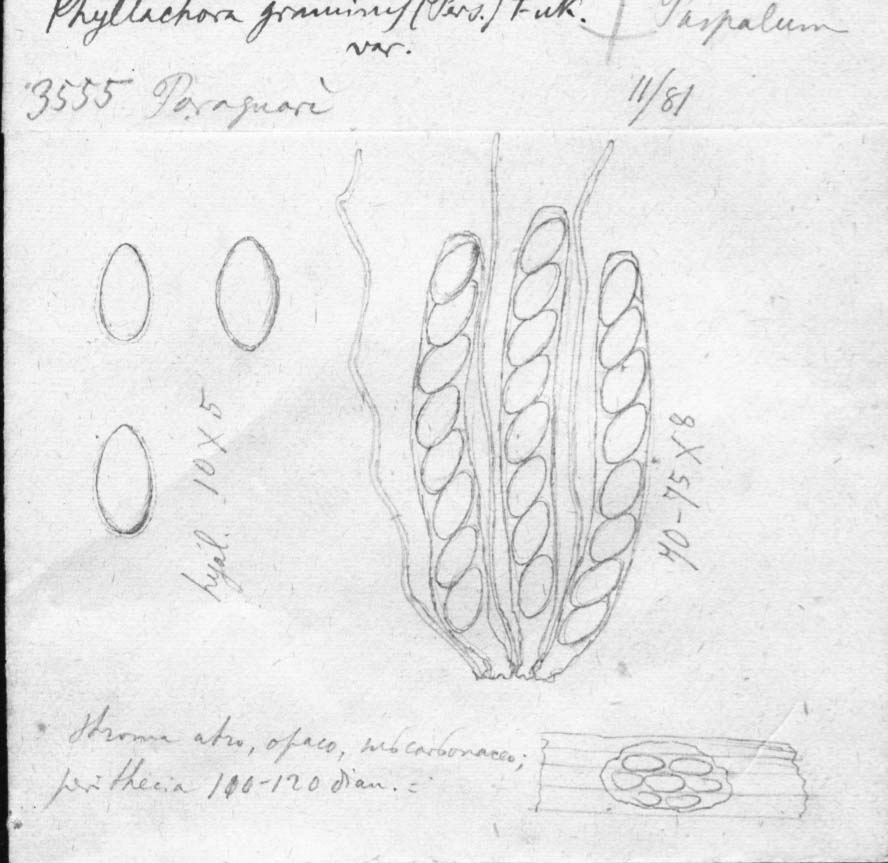 Phyllachora graminis (Pers.) Fuk. Paspalum
var.
3555 Paraguarì 11/81
hyal. 10 X 5
70-75 X 8
Stroma atro, opaco, subcarbonaceo;
perithecia 100-120 diam. =